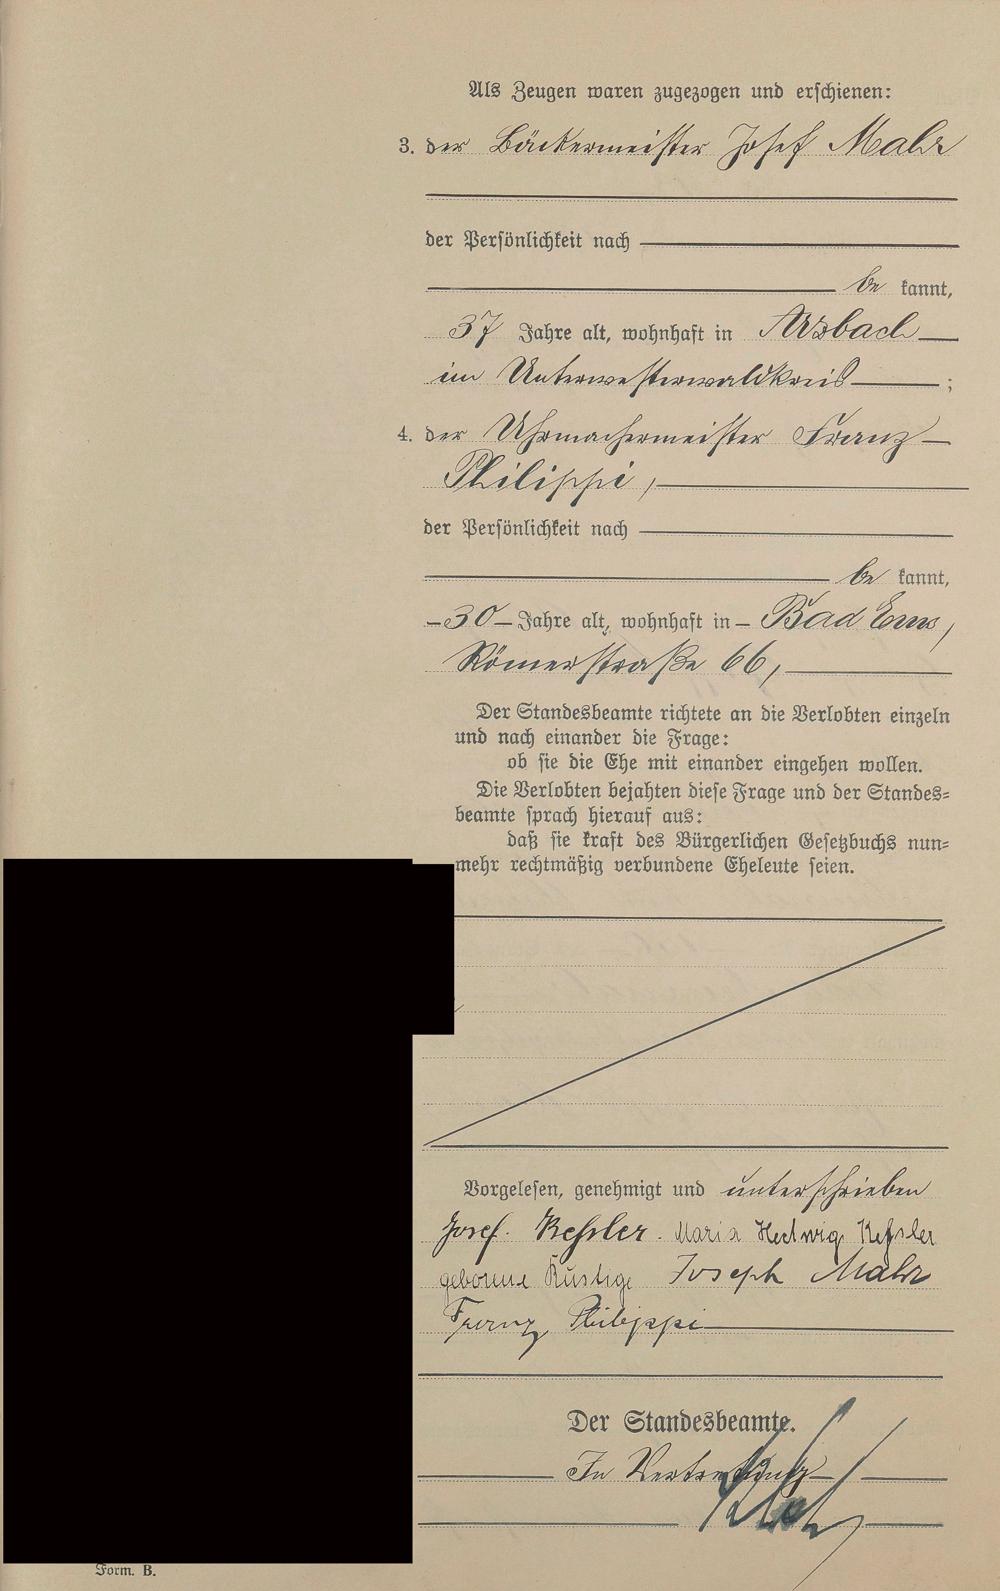 Als Zeugen waren zugezogen und erschienen:
3. der Bäckermeister Josef Mahr
der Persönlichkeit nach
be kannt,
37 Jahre alt, wohnhaft in Arzbach
im Unterwesterwaldkreis ;
4. der Uhrmachermeister Franz
Philippi,
der Persönlichkeit nach
be kannt,
30 Jahre alt, wohnhaft in Bad Ems,
Römerstraße 66,
Der Standesbeamte richtete an die Verlobten einzeln
und nach einander die Frage:
ob sie die Ehe mit einander eingehen wollen.
Die Verlobten bejahten diese Frage und der Standes-
beamte sprach hierauf aus:
daß sie kraft des Bürgerlichen Gesetzbuchs nun-
mehr rechtmäßig verbundene Eheleute seien.
Vorgelesen, genehmigt und unterschrieben
Josef. Keßler. Maria Hedwig Keßler
geborene Rustige Joseph Mahr
Franz Philippi
Der Standesbeamte.
In Vertretung
Form. B.